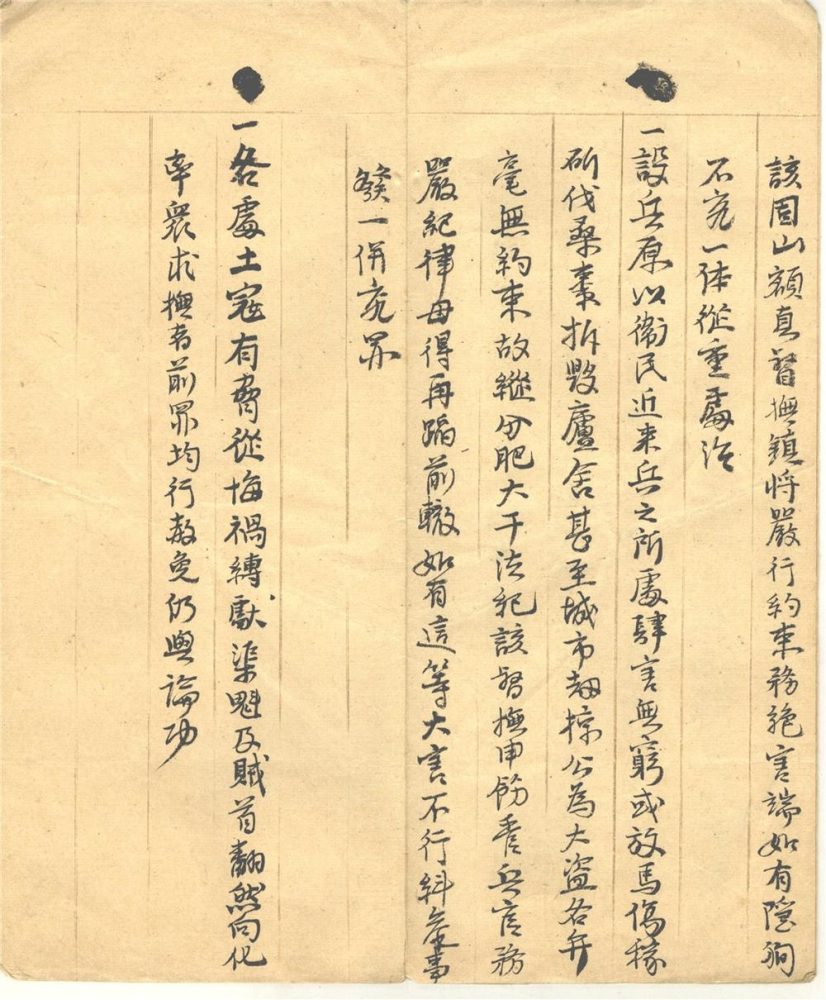 該固山額真督撫鎮將嚴行約束務絕害端如有隱狥
不究一体從重處治
一設兵原以衛民近来兵之所處肆害無窮或放馬傷稼
斫伐桑棗拆毀廬舍甚至城市劫掠公為大盜各弁
毫無約束故縱分肥大干法紀該督撫申飭香兵官務
嚴紀律毋得再蹈前轍如有這等大害不行糾叅事
發一併究罪
一各處土寇有脅從悔禍縛獻渠魁及賊首翻然向化
率衆求撫者前罪均行赦免仍與論功